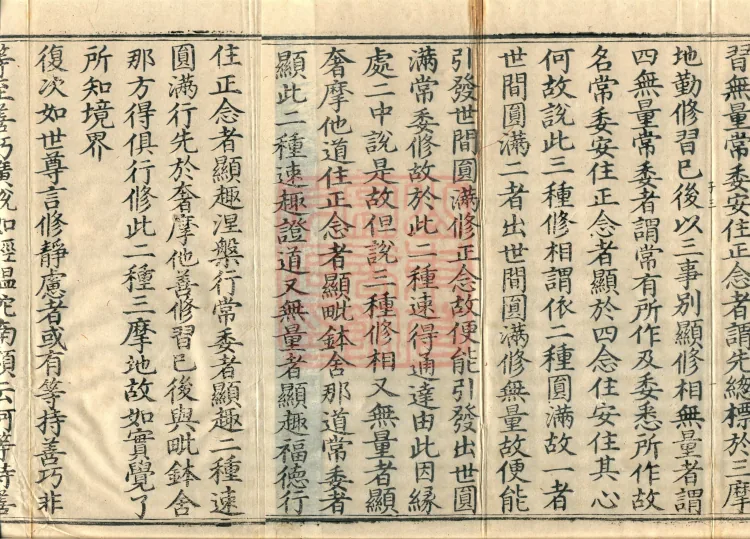 習無量常委安住正念者謂先總標於三摩
地勤修習已後以三事別顯修相無量者謂
四無量常委者謂常有所作及委悉所作故
名常委安住正念者顯於四念住安住其心
何故說此三種修相謂依二種圓滿故一者
世間圓滿二者出世間圓滿修無量故便能
引發世間圓滿修正念故便能引發出世圓
滿常委修故於此二種速得通達由此因緣
處二中說是故但說三種修相又無量者顯
奢摩他道住正念者顯毗鉢舍那道常委者
顯此二種速趣證道又無量者顯趣福德行
住正念者顯趣涅槃行常委者顯趣二種速
圓滿行先於奢摩他善修習已後與毗鉢舍
那方得俱行修此二種三摩地故如實覺了
所知境界
復次如世尊言修靜慮者或有等持善巧非
等至善巧廣說如經嗢柁南頌云何等持善